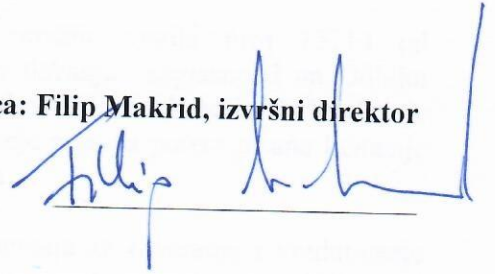 ca: Filip Makrid, izvršni direktor
Filip